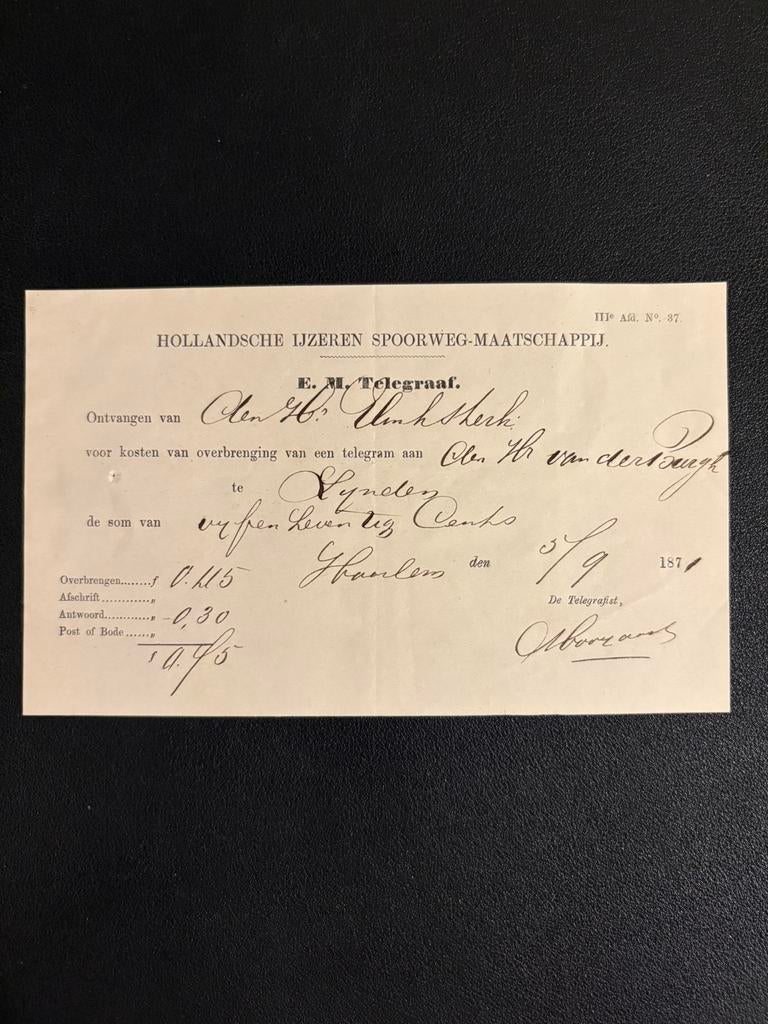 IIIe Afd. No. 37.
HOLLANDSCHE IJZEREN SPOORWEG-MAATSCHAPPIJ.
E. M. Telegraaf.
Ontvangen van den Hr
voor kosten van overbrenging van een telegram aan den Hr van der Burgh
te Lynden
de som van vyf en seventig Cents
Haarlem den 5/9 1871
Overbrengen........f 0.45
Afschrift............„
Antwoord...........„ -0,30
Post of Bode......„
f 0.75
De Telegrafist,